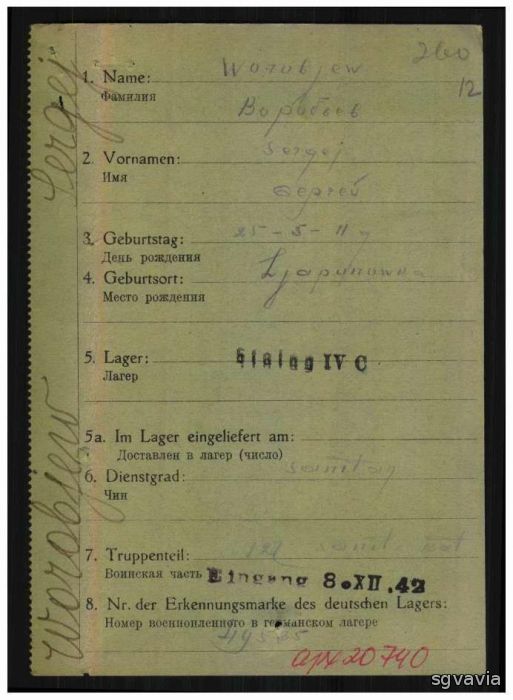 260
12
1. Name: Worobjew
Фамилия
Воробьев
2. Vornamen: Sergej
Имя
Сергей
3. Geburtstag: 25-5-11
День рождения
4. Geburtsort: Ljapunowka
Место рождения
5. Lager: Stalag IV C
Лагер
5a. Im Lager eingeliefert am:
Доставлен в лагер (число)
6. Dienstgrad:
Чин
7. Truppenteil:
Воинская часть Eingang 8. XII. 42
8. Nr. der Erkennungsmarke des deutschen Lagers:
Номер военнопленного в германском лагере
арх 20740
Worobjew Sergej
sgvavia